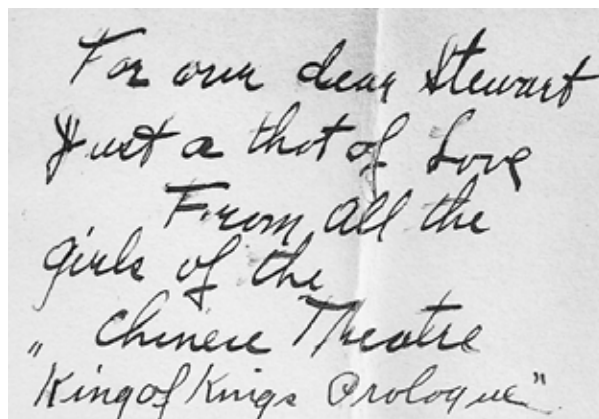 For our dear Stewart
Just a thot of Love
From all the
girls of the
Chinese Theatre
"King of Kings Prologue"